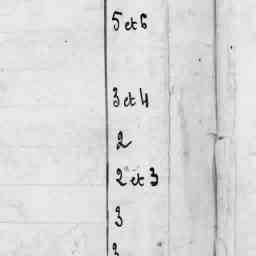 5 et 6
3 et 4
2
2 et 3
3
3